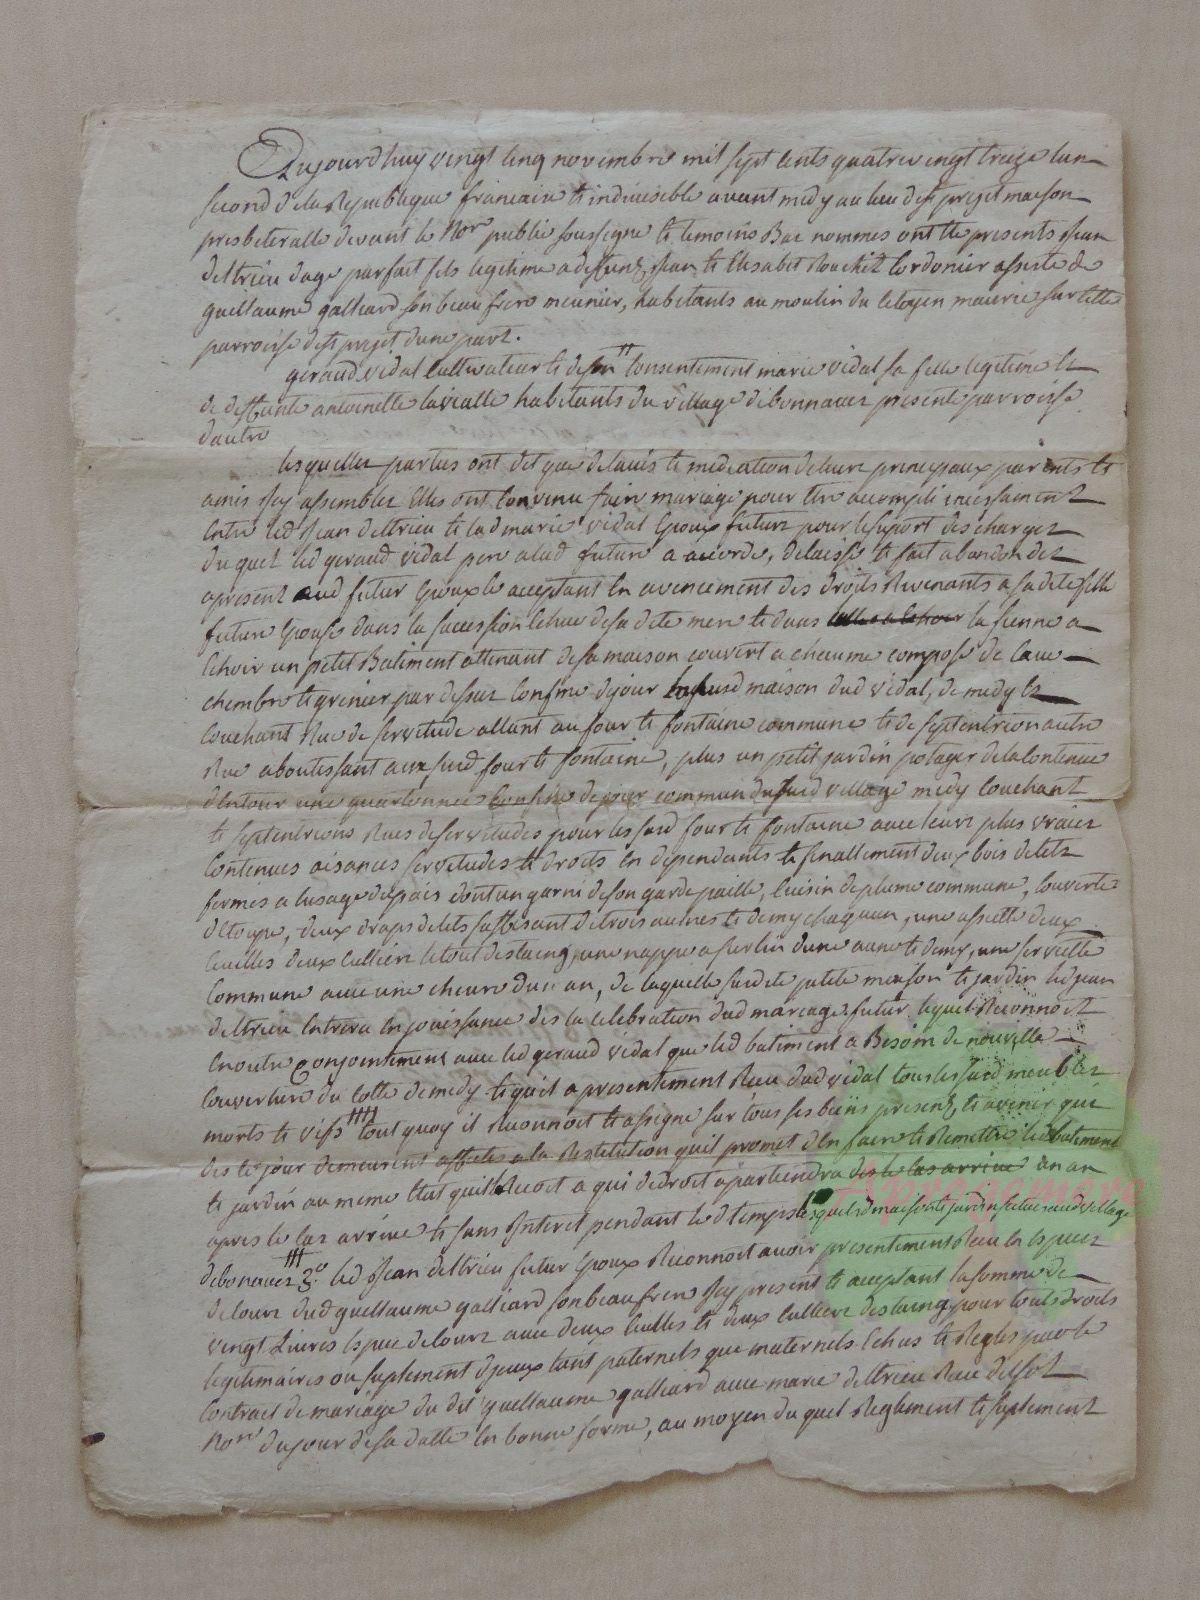 Aujourd'huy vingt cinq novembre mil sept cents quatre vingt treize l'an
second de la Republique francaise et indivisible avant midy au lieu de St projet maison
presbiteralle devant le Nore public soussigne et temoins Bas nommes ont ete presents Jean
deltrieu dage parfait fils legitime a deffunts Jean et Elisabet cordonier assiste de
guillaume galliard son beau frere meunier, habitants au moulin du citoyen sur cette
parroisse de St projet d'une part.
geraud vidal cultivateur et de son consentement marie vidal sa fille legitime et
de deffunte antoinette lavialle habitants du village de bonnaves presente parroisse
d'autre
lesquelles parties ont dit que de lavis et mediation de leurs principaux parents et
amis icy assembles Elles ont convenu faire mariage pour etre acompli incessament
entre led Jean deltrieu et lad marie vidal Epoux futurs pour le suport des charges
du quel led geraud vidal pere a lad future a accorde, delaisse et fait abandon des
apresent aud futur Epoux le aceptant en avencement des droits Revenants a sa dite fille
future Epouse dans la succession Echue de sa dite mere et dans la sienne a
Echoir un petit Batiment attenant de sa maison couvert a chaume compose de cave
chembre et grenier par dessus confine de jour maison dud vidal, de midy et
couchant Rue de servitude allant au four et fontaine commune et de septentrion autre
Rue aboutissant aux susd four et fontaine, plus un petit jardin potager de la contenue
d'entour une quartonnee confine de jour commun du susd village midy couchant
et septentrions Rues de servitudes pour les susd four et fontaine avec leurs plus vraies
contenues aisances servitudes et droits en dependants et finallement deux bois de lits
fermes a lusage du pais dont un garni de son garde paille, cuisin de plume commune, couverte
d'etoupe, deux draps de lits suffisant de trois aunes et demy chaquun, une assiette deux
ecuelles deux culliers le tout destaing, une nappe dune aune et demy, une serviette
commune avec une chevre d'un an, de laquelle susdite petite maison et jardin led jean
deltrieu entrera en jouissance des la celebration dud mariage futur, lequel Reconnoit
en outre conjointement avec led geraud vidal que led batiment a Besoin de nouvelle
couverture du cotte de midy et quil a presentement Recu dud vidal tous les susd meubles
morts et vifs tout quoy il Reconnoit et assigne sur tous ses biens presents et avenir qui
des ce jour demeurent affectes a la Restitution quil promet d'en faire et Remettre led batiment
et jardin au meme Etat quil Recoit a qui de droit apartiendra un an
apres le cas arrive et sans Interet pendant led temps lesquels maison et jardin situes aud village
de bonaves 3o led Jean deltrieu futur Epoux Reconnoit avoir presentement Recu en especes
de cours dud guillaume galliard son beau frere icy present et aceptant la somme de
vingt Livres espece de cours avec deux Ecuelles et deux culliers destaing pour touts droits
legitimaires ou suplement d'jceux tant paternels que maternels Echus et Regles par le
contract de mariage du dit guillaume galliard avec marie deltrieu Recu
Nore du jour de sa datte en bonne forme, au moyen du quel Reglement et suplement